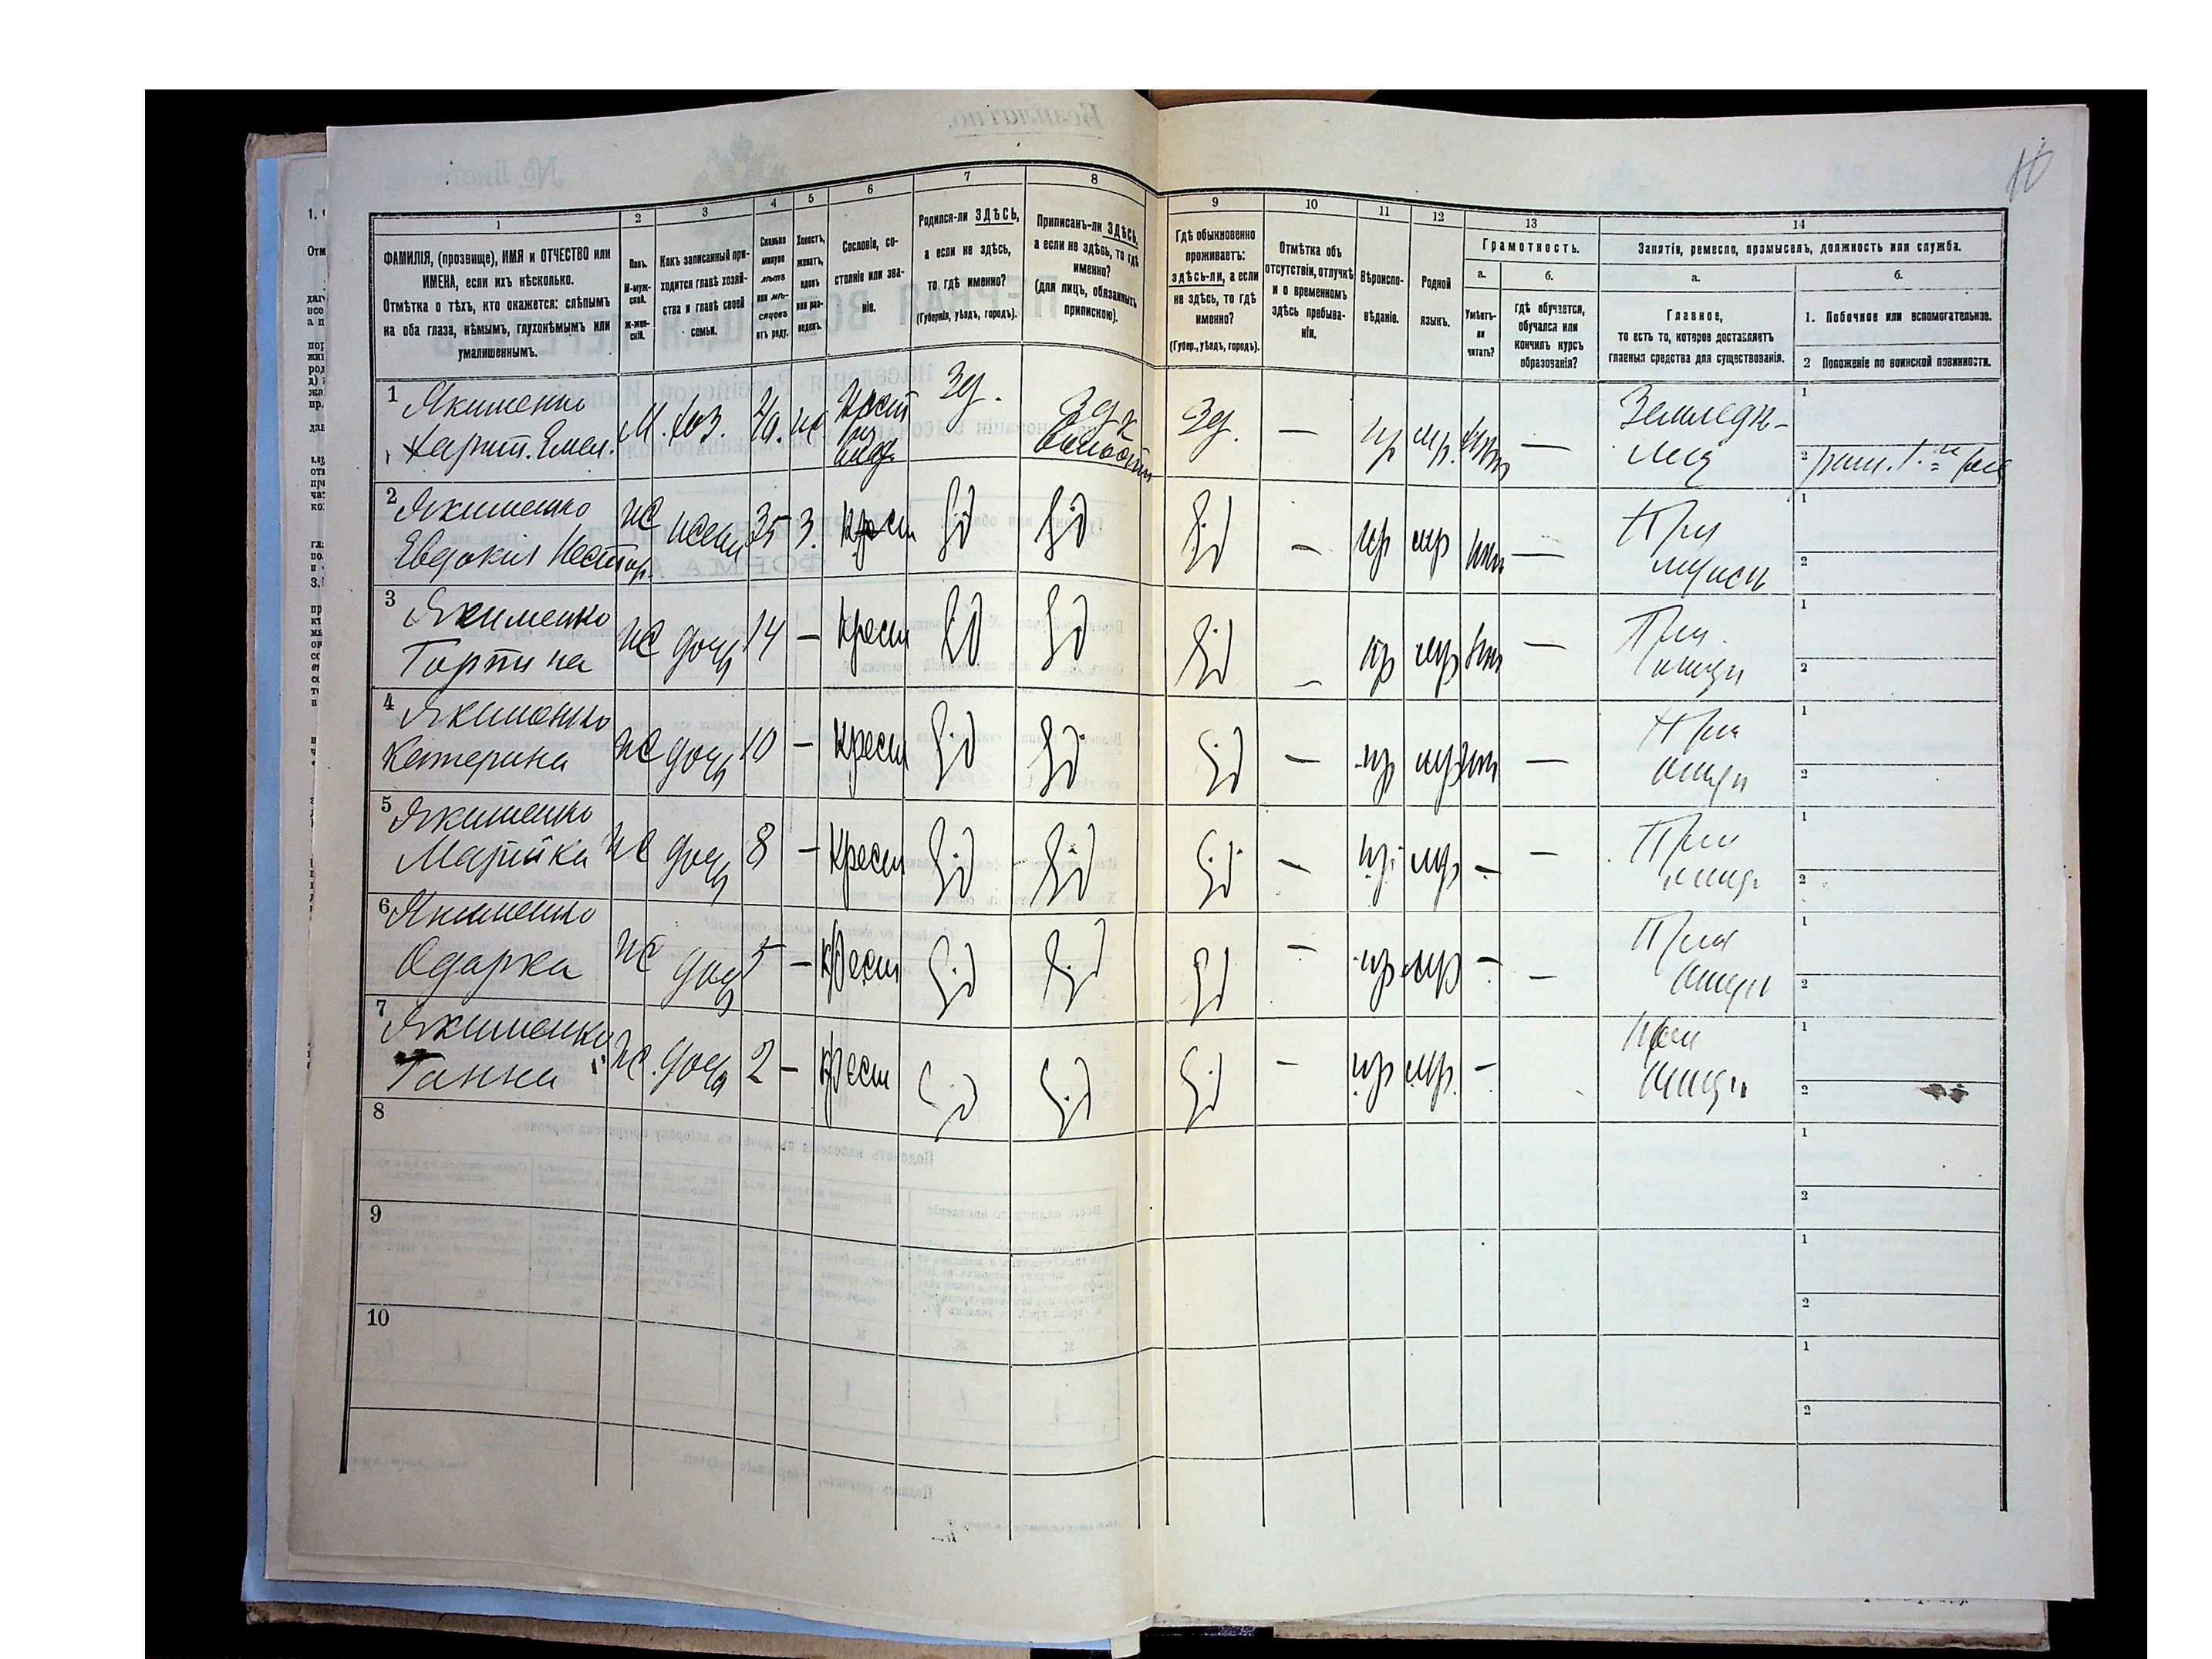 10
1
ФАМИЛІЯ, (прозвище), ИМЯ и ОТЧЕСТВО или
ИМЕНА, если ихъ нѣсколько.
Отмѣтка о тѣхъ, кто окажется: слѣпымъ
на оба глаза, нѣмымъ, глухонѣмымъ или
умалишеннымъ.
2
Полъ.
М-муж-
ской.
Ж-жен-
скій.
3
Какъ записанный при-
ходится главѣ хозяй-
ства и главѣ своей
семьи.
4
Сколько
минуло
лѣтъ
или мѣ-
сяцевъ
отъ роду.
5
Холостъ,
женатъ,
вдовъ
или раз-
веденъ.
6
Сословіе, со-
стояніе или зва-
ніе.
7
Родился-ли ЗДѢСЬ,
а если не здѣсь,
то гдѣ именно?
(Губернія, уѣздъ, городъ).
8
Приписанъ-ли ЗДѢСЬ,
а если не здѣсь, то гдѣ
именно?
(для лицъ, обязанныхъ
припискою).
9
Гдѣ обыкновенно
проживаетъ:
здѣсь-ли, а если
не здѣсь, то гдѣ
именно?
(Губер., уѣздъ, городъ).
10
Отмѣтка объ
отсутствіи, отлучкѣ
и о временномъ
здѣсь пребыва-
ніи.
11
Вѣроиспо-
вѣданіе.
12
Родной
языкъ.
13
Грамотность.
а.
Умѣетъ-
ли
читать?
б.
Гдѣ обучается,
обучался или
кончилъ курсъ
образованія?
14
Занятіе, ремесло, промыселъ, должность или служба.
а.
Главное,
то есть то, которое доставляетъ
главныя средства для существованія.
б.
1. Побочное или вспомогательное.
2 Положеніе по воинской повинности.
1 Якименко
Харит. Емел. М. хоз. 40. ж Крест Зд. Зд. Зд. — пр мр. —
Земледѣ-
лія
1
2
2 Якименко
Евдокия Нестор. ж жена 35 З. Крест зд зд зд — пр мр —
При
мужѣ
1
2
3 Якименко
Горпина ж дочь 14 — Крест зд зд зд — пр мр —
При
отцѣ
1
2
4 Якименко
Катерина ж дочь 10 — Крест зд зд зд — пр мр —
При
отцѣ
1
2
5 Якименко
Марійка ж дочь 8 — Крест зд зд зд — пр мр — —
При
отцѣ
1
2
6 Якименко
Одарка ж дочь 5 — Крест зд зд зд — пр мр — —
При
отцѣ
1
2
7 Якименко
Ганна ж. дочь 2 — Крест зд зд зд — пр мр. —
При
отцѣ
1
2
8
1
2
9
1
2
10
1
2